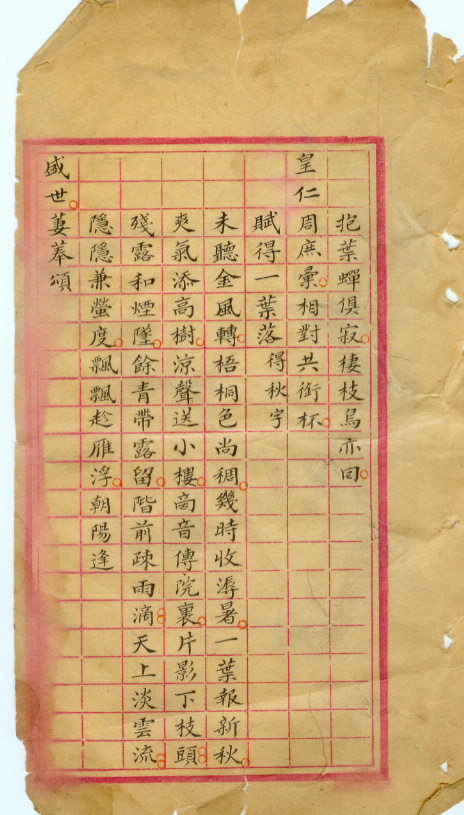 抱葉蟬俱寂棲枝鳥亦回
皇仁周庶彙相對共銜杯
賦得一葉落得秋字
未聽金風轉梧桐色尚稠幾時收溽暑一葉報新秋
爽氣添高樹涼聲送小樓啇音傳院裏片影下枝頭
殘露和煙墜餘青帶露留階前疎雨滴天上淡雲流
隱隱兼螢度飄飄趁雁浮朝陽逢
盛世萋菶頌